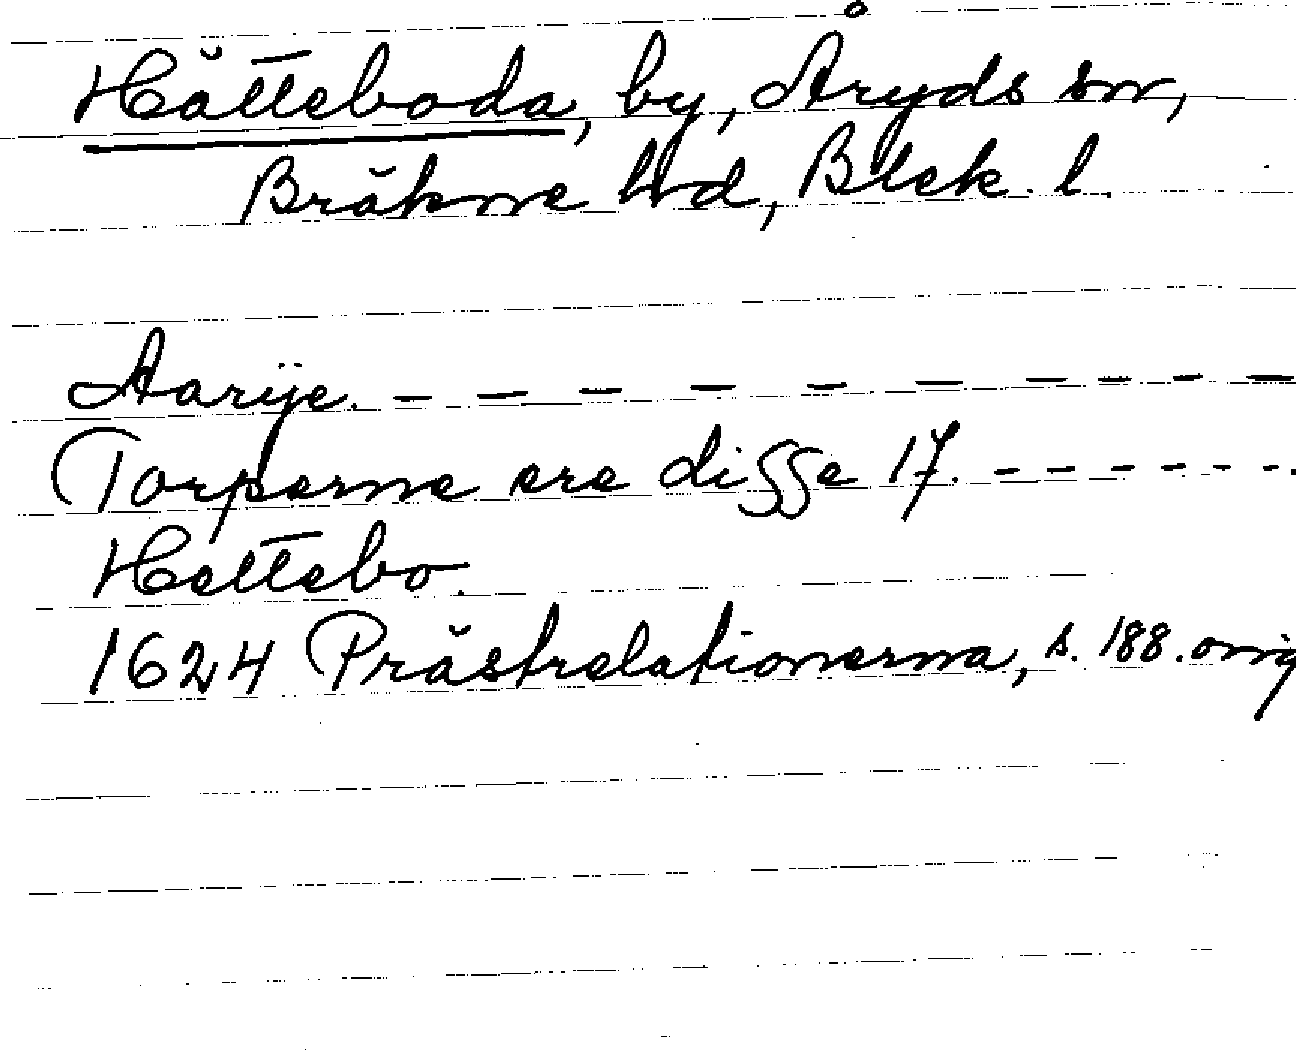 Hätteboda, by, Åryds sn,
Bräkne hd, Blek. l.
Aarÿe. - - - - - - - - -
Torperne ere disse 17. - - - - - - -
Hettebo.
1624 Prästrelationerna, s. 188. orig